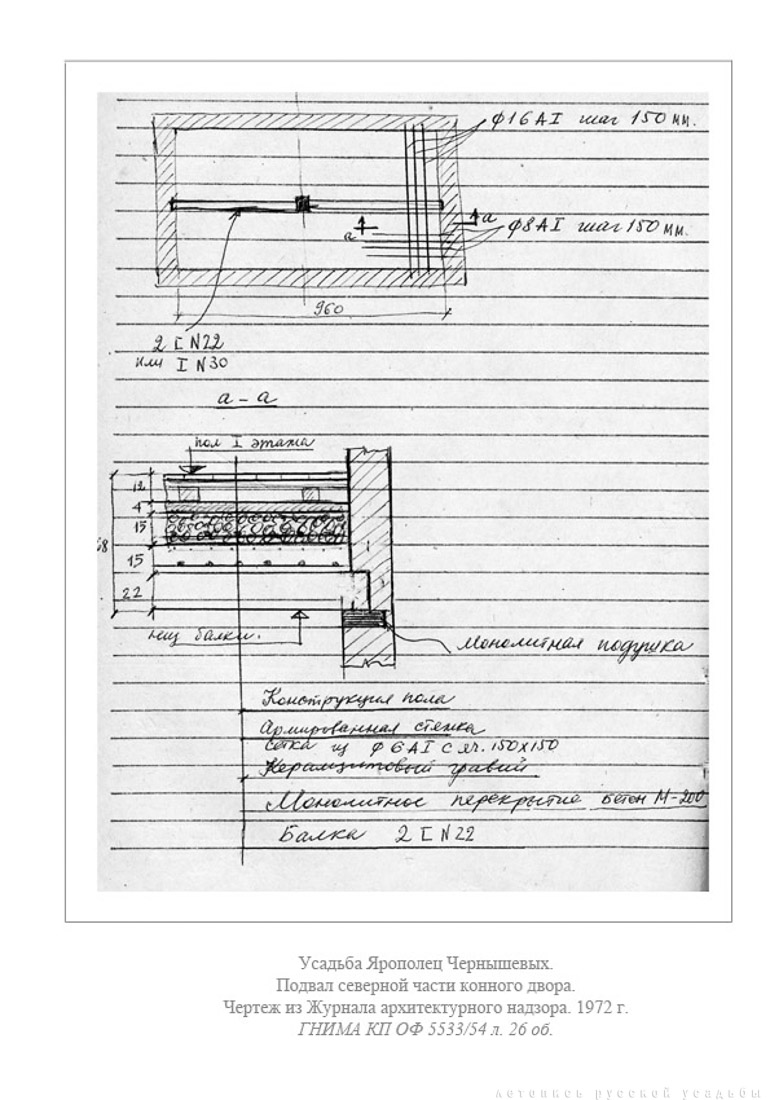 ф16АI шаг 150 мм.
а
а
ф8АI шаг 150 мм.
960
2 [ N22
или I N30
а - а
пол I этажа
12
4
15
68
15
22
низ балки.
Монолитная подушка
Конструкция пола
Армированная стяжка
сетка из ф6АI с яч. 150х150
Керамзитовый гравий
Монолитное перекрытие бетон М-200
Балка 2 [ N22
Усадьба Ярополец Чернышевых.
Подвал северной части конного двора.
Чертеж из Журнала архитектурного надзора. 1972 г.
ГНИМА КП ОФ 5533/54 л. 26 об.
летопись русской усадьбы